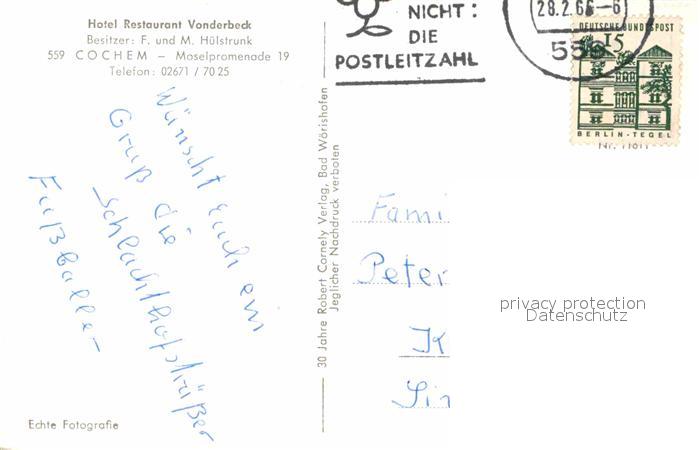 Hotel Restaurant Vonderbeck
Besitzer: F. und M. Hülstrunk
559 COCHEM – Moselpromenade 19
Telefon: 02671 / 70 25
Wünscht euch ein
Gruß die
Schlachthofstrüßer
Fußballer
Echte Fotografie
30 Jahre Robert Cornely Verlag, Bad Wörishofen
Jeglicher Nachdruck verboten
NICHT:
DIE
POSTLEITZAHL
28.2.66-6
DEUTSCHE BUNDESPOST
15
BERLIN-TEGEL
Fami
Peter
K
Sin
privacy protection
Datenschutz